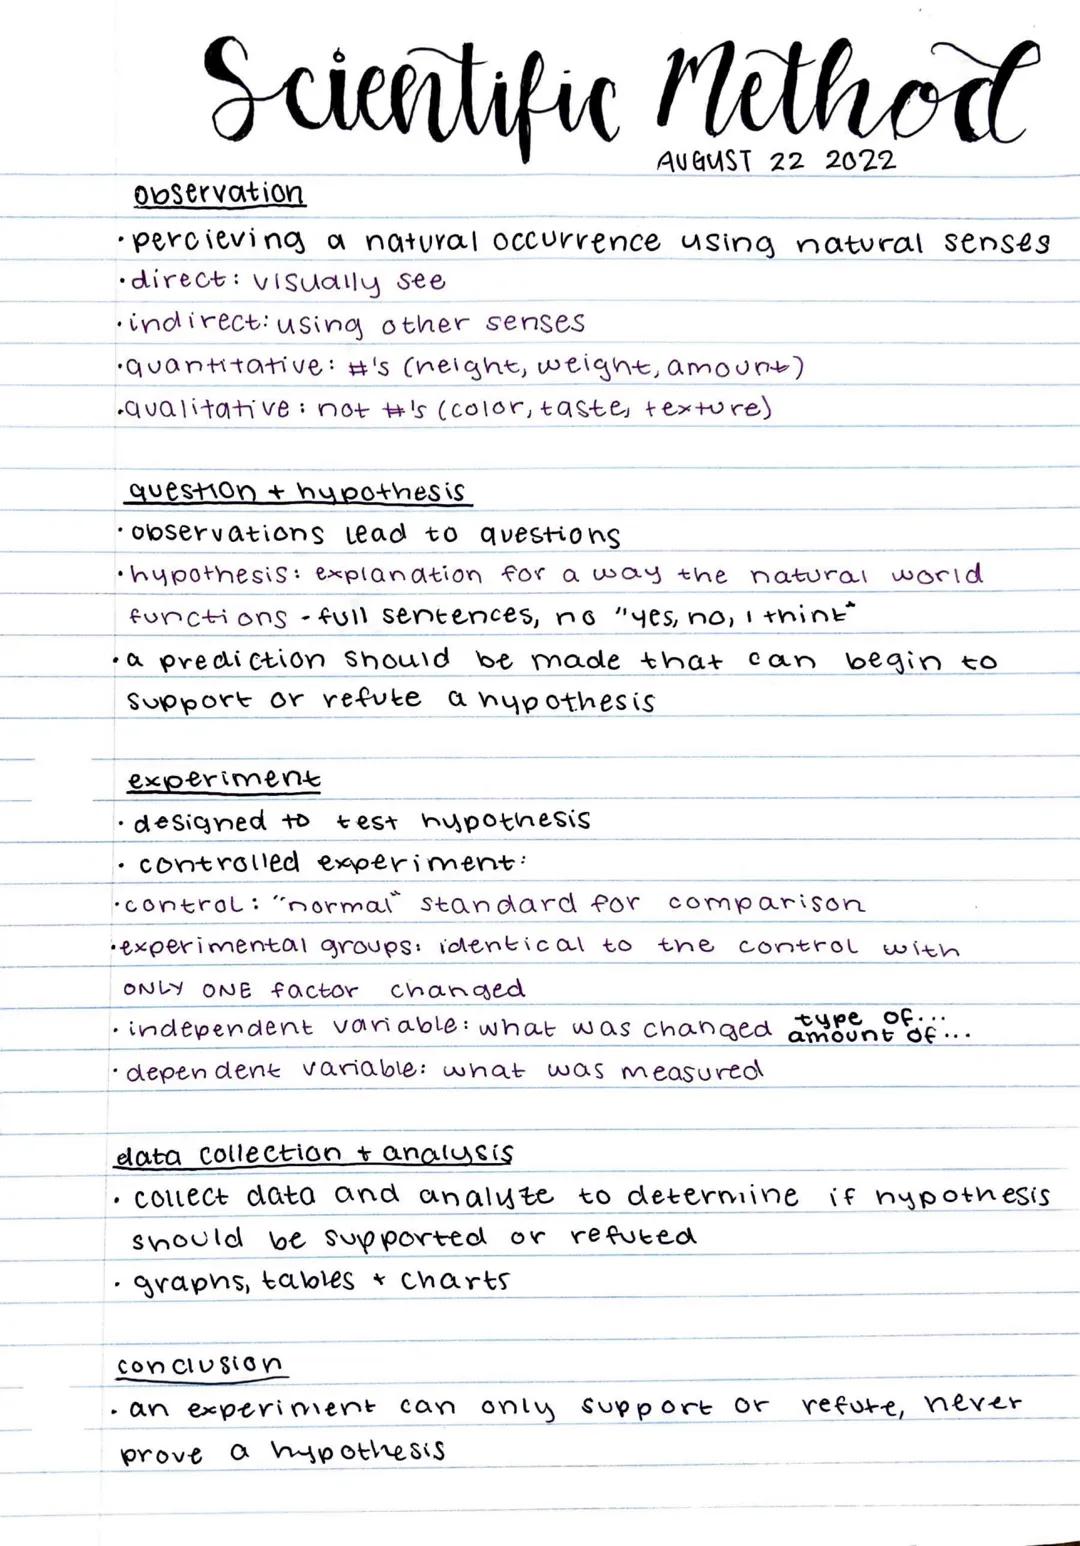 Scientific Method
AUGUST 22 2022
observation
• percieving a natural occurrence using natural senses
• direct: visually see
• indirect: using other senses
• quantitative: #'s (height, weight, amount)
• qualitative: not #'s (color, taste, texture)
question + hypothesis
• observations lead to questions
• hypothesis: explanation for a way the natural world
functions - full sentences, no "yes, no, I think"
• a prediction should be made that can begin to
support or refute a hypothesis
experiment
• designed to test hypothesis
• controlled experiment:
• control: "normal" standard for comparison
• experimental groups: identical to the control with
ONLY ONE factor changed
• independent variable: what was changed type of...
amount of...
• dependent variable: what was measured
data collection + analysis
• collect data and analyze to determine if hypothesis
should be supported or refuted
• graphs, tables + charts
conclusion
• an experiment can only support or refute, never
prove a hypothesis